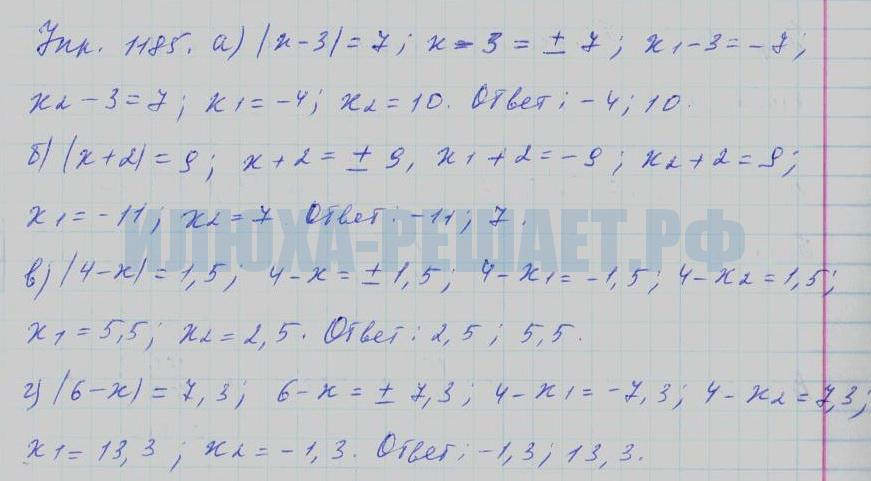 Упр. 1185. а) |x-3| = 7; x-3 = ± 7; x1-3 = -7;
x2-3=7; x1=-4; x2=10. Ответ: -4; 10.
б) |x+2| = 9; x+2 = ± 9, x1+2=-9; x2+2=9;
x1=-11; x2=7. Ответ: -11; 7.
ИЛЮХА-РЕШАЕТ.РФ
в) |4-x| = 1,5; 4-x= ± 1,5; 4-x1=-1,5; 4-x2=1,5;
x1=5,5; x2=2,5. Ответ: 2,5; 5,5.
г) |6-x| = 7,3; 6-x= ± 7,3; 4-x1=-7,3; 4-x2=7,3;
x1=13,3; x2=-1,3. Ответ: -1,3; 13,3.